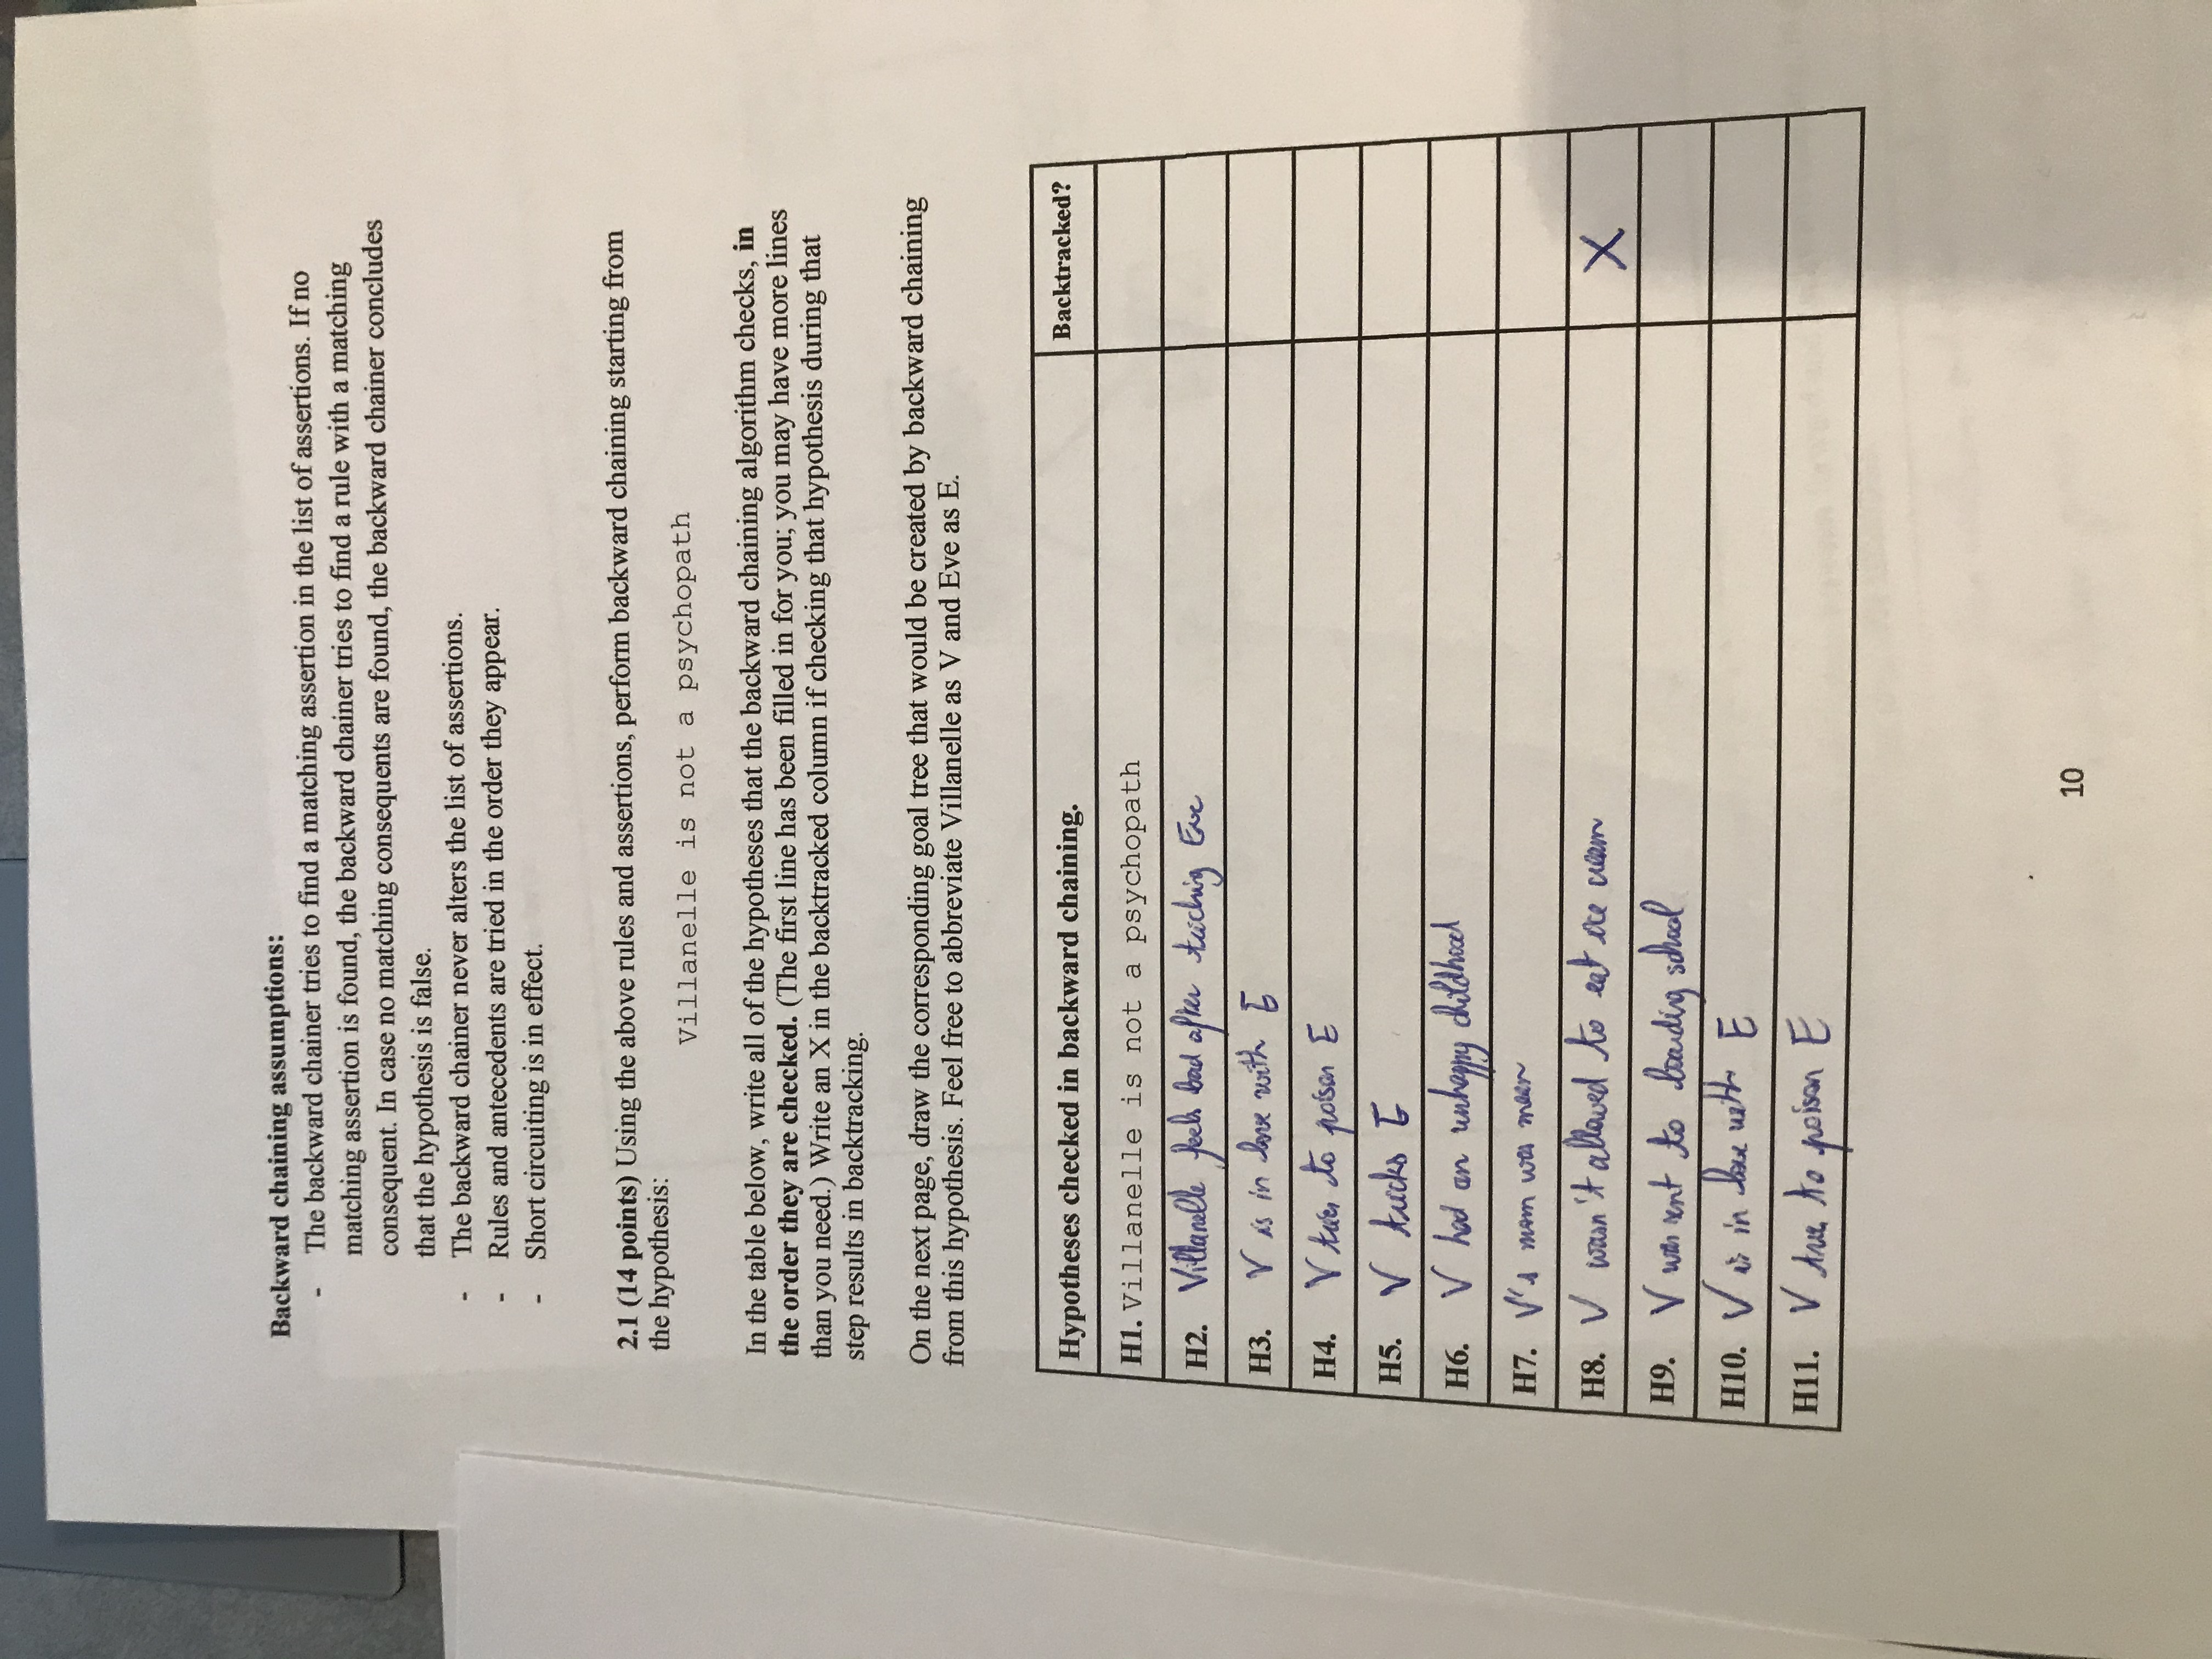 Backward chaining assumptions:
- The backward chainer tries to find a matching assertion in the list of assertions. If no
matching assertion is found, the backward chainer tries to find a rule with a matching
consequent. In case no matching consequents are found, the backward chainer concludes
that the hypothesis is false.
- The backward chainer never alters the list of assertions.
- Rules and antecedents are tried in the order they appear.
- Short circuiting is in effect.
2.1 (14 points) Using the above rules and assertions, perform backward chaining starting from
the hypothesis:
Villanelle is not a psychopath
In the table below, write all of the hypotheses that the backward chaining algorithm checks, in
the order they are checked. (The first line has been filled in for you; you may have more lines
than you need.) Write an X in the backtracked column if checking that hypothesis during that
step results in backtracking.
On the next page, draw the corresponding goal tree that would be created by backward chaining
from this hypothesis. Feel free to abbreviate Villanelle as V and Eve as E.
Hypotheses checked in backward chaining. Backtracked?
H1. Villanelle is not a psychopath
H2. Villanelle feels bad after tricking Eve
H3. V is in love with E
H4. V tries to poison E
H5. V tricks E
H6. V had an unhappy childhood
H7. V's mom was mean
H8. V wasn't allowed to eat ice cream X
H9. V was sent to boarding school
H10. V is in love with E
H11. V tries to poison E
10